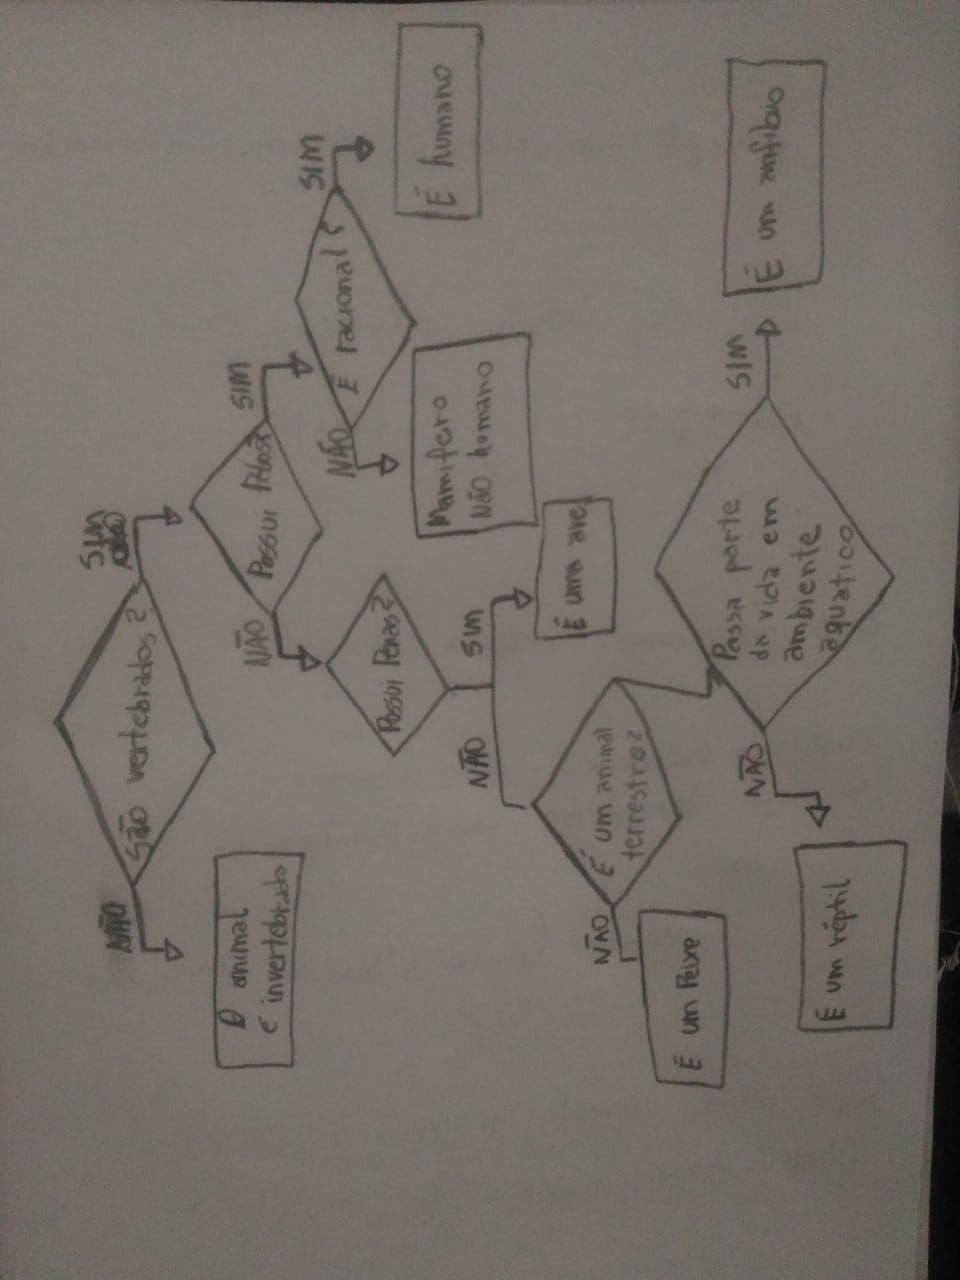 São vertebrados ?
NÃO
SIM
O animal
é invertebrado
Possui Pêlos?
NÃO
SIM
É racional ?
NÃO
SIM
Mamifero
Não humano
É humano
Possui Penas?
NÃO
SIM
É uma ave
É um animal
terrestre?
NÃO
É um Peixe
Passa parte
da vida em
ambiente
aquatico
NÃO
SIM
É um réptil
É um anfíbio